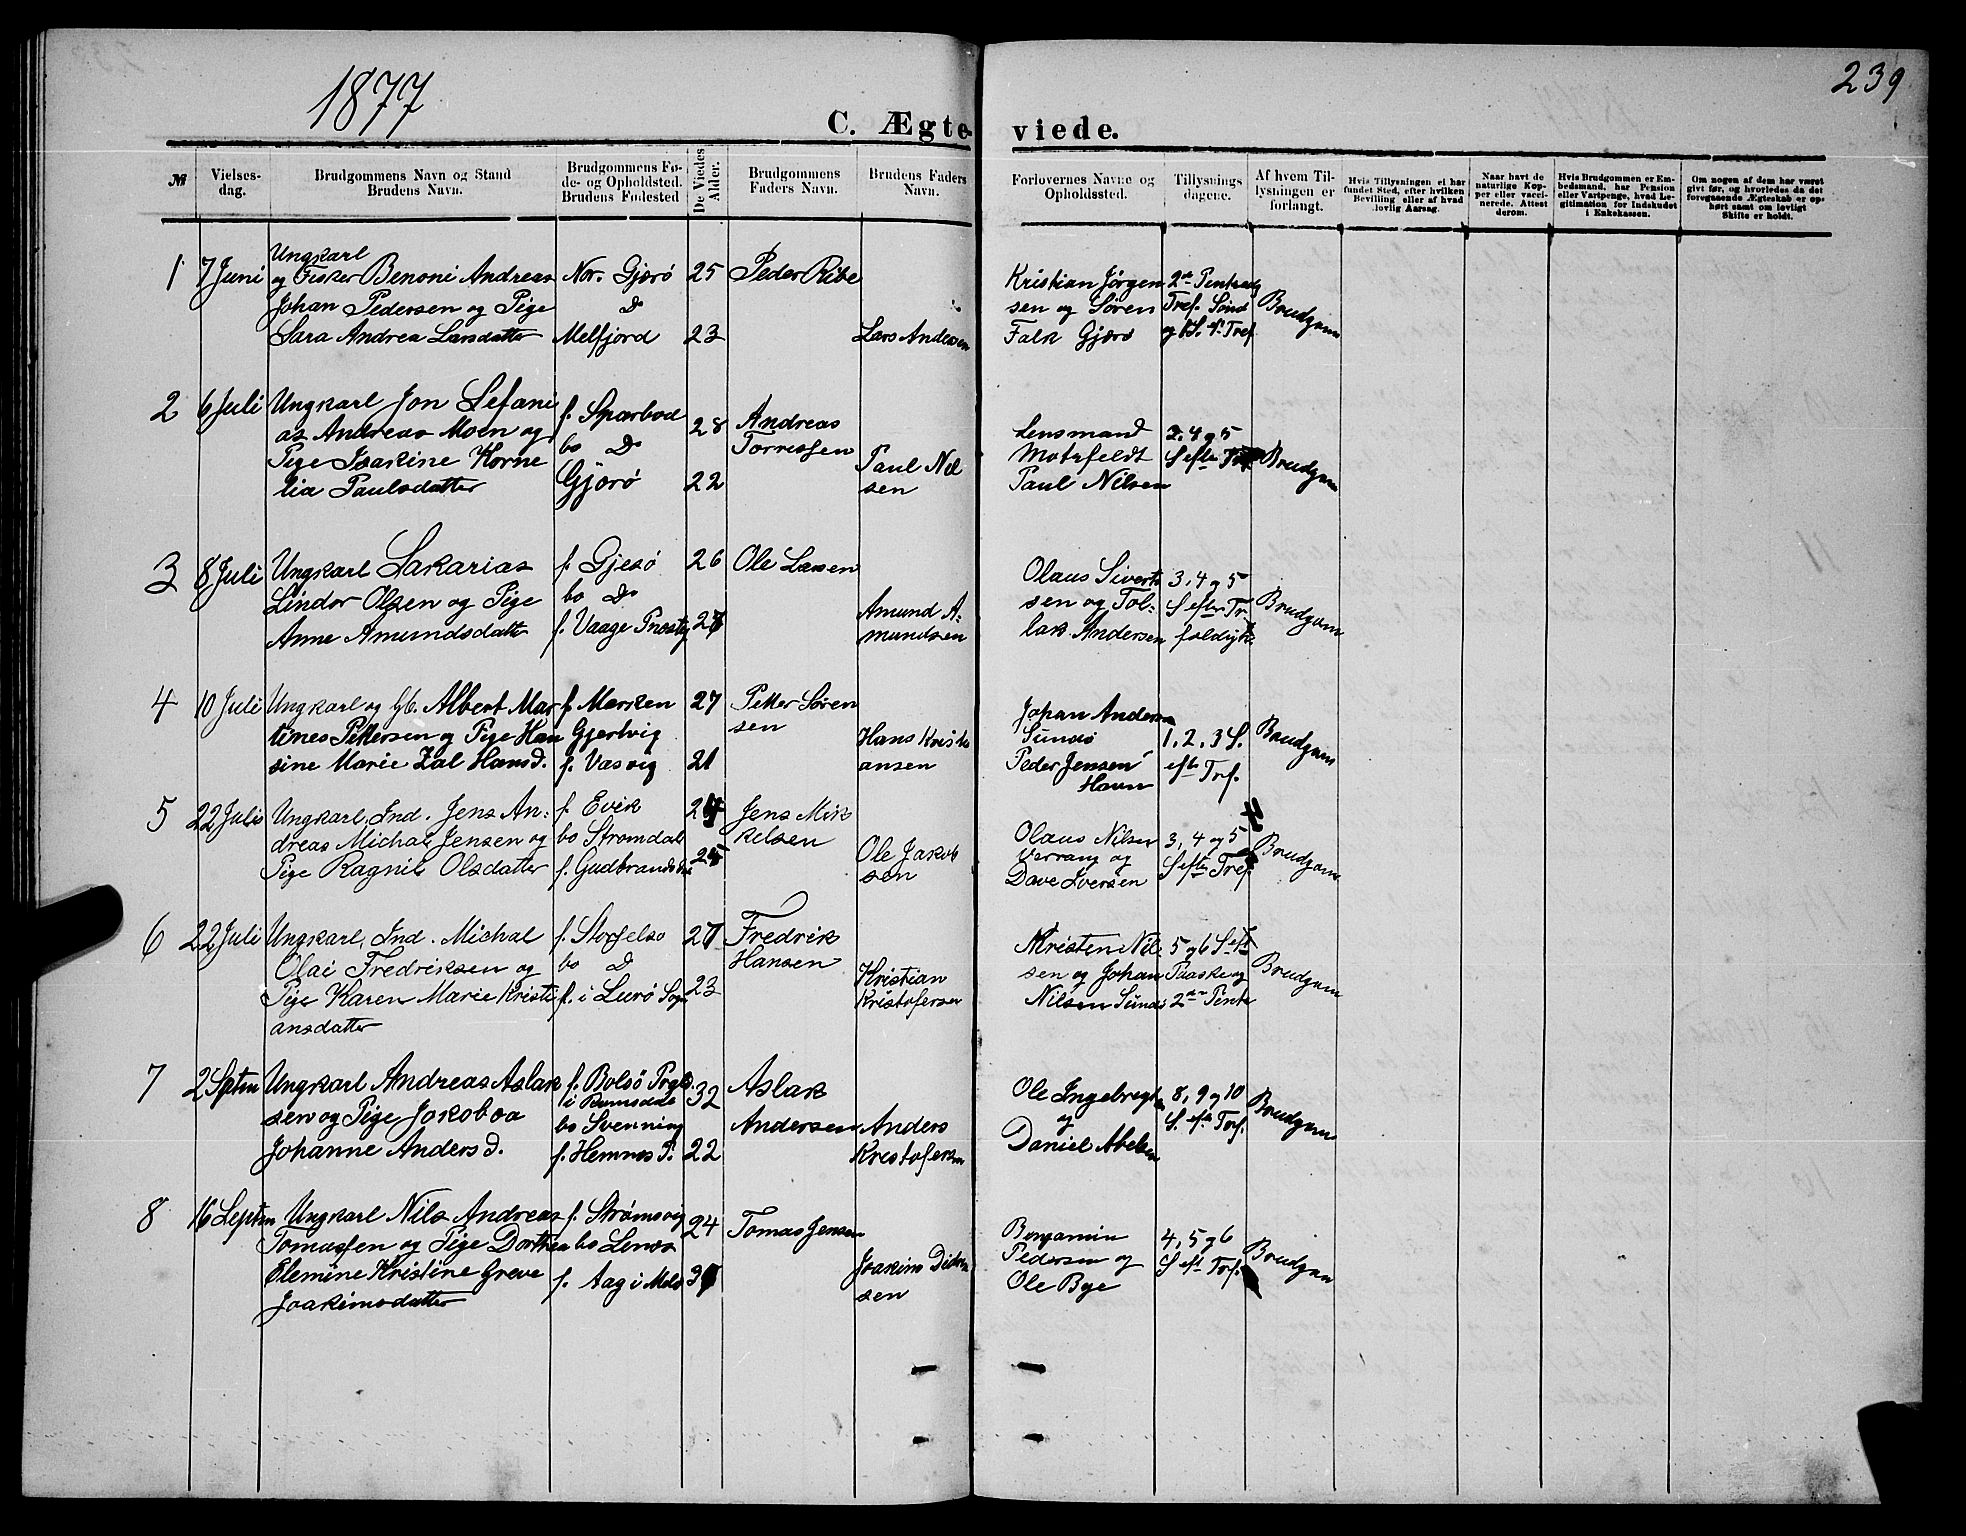 1877
239
C. Ægteviede.
№
Vielses-
dag.
Brudgommens Navn og Stand
Brudens Navn.
Brudgommens Fø-
de- og Opholdsted.
Brudens Fødested
De Viedes
Alder.
Brudgommens
Faders Navn.
Brudens Faders
Navn.
Forlovernes Navne og
Opholdssted.
Tillysnings
dagene.
Af hvem Til-
lysningen er
forlangt.
Hvis Tillysningen ei har
fundet Sted, efter hvilken
Bevilling eller af hvad
lovlig Aarsag.
Naar havt de
naturlige Kop-
per eller vacci-
nerede. Attest
derom.
Hvis Brudgommen er Em-
bedsmand, har Pension
eller Vartpenge, hvad Le-
gitimation for Indskudet
i Enkekassen.
Om nogen af dem har været
givt før, og hvorledes da det
foregaaende Ægteskab er op-
hørt samt om lovligt
Skifte er holdt.
1 7 Juni
Ungkarl
og Fisker Benoni Andreas
Johan Pedersen og Pige
Sara Andrea Larsdatter
Nor. Gjærø
Do
Melfjord
25
23
Peder Ribe
Lars Andersen
Kristian Jørgen
sen og Søren
Falk Gjærø
2den Pentedag
Tref. Sønd
og 1 S. e. Tref
Brudgom
2 6 Juli
Ungkarl Jon Sefani
as Andreas Moen og
Pige Isakine Korne
lia Paulsdatter
f. Sparbod
bo Do
Gjærø
28
22
Andreas
Torressen
Paul Nil
sen
Lensmand
Motzfeldt
Paul Nilsen
2, 4 og 5
S efter Tref
Brudgom
3 8 Juli
Ungkarl Sakarias
Lindor Olsen og Pige
Anne Amundsdatter
f. Gjesø
bo Do
f. Vaage Prøstg
26
27
Ole Larsen
Amund A-
mundsen
Olaus Siverts
sen og Tol-
lak Andersen
3, 4 og 5
S efter Tr.
foldigh.
Brudgom
4 10 Juli
Ungkarl og Gb. Albert Mar
tines Pettersen og Pige Han
sine Marie Zal Hansd.
f. Marken
Gjertvig
f. Vasvig
27
21
Petter Søren
sen
Hans Kristi
ansen
Johan Andersen
Sundø
Peder Jensen
Havn
1, 2, 3 S.
eft Tref.
Brudgom
5 22 Juli
Ungkarl, Ind. Jens An-
dreas Michal Jensen og
Pige Ragnil Olsdatter
f. Evik
bo Strømdal
f. Gudbrandsda
24
25
Jens Mik
kelsen
Ole Jakob
sen
Olaus Nilsen
Verrang og
Dave Iversen
3, 4 og 5
S efter Tref
Brudgom
6 22 Juli
Ungkarl, Ind. Michal
Olai Fredriksen og
Pige Karen Marie Kristi
ansdatter
f. Storselsø
bo Do
f. i Lurø Sogn
27
23
Fredrik
Hansen
Kristian
Kristofersen
Kristen Nil
sen og Johan
Nilsen Sundø
5 og 6 S eft
Paaske og
2den Pente
Brudgom
7 2 Septm
Ungkarl Andreas Aslak
sen og Pige Jokoboa
Johanne Anders d.
f. Bolsø Prgj.
i Romsdale
bo Svenning
f. Hemnes P.
32
22
Aslak
Andersen
Anders
Kristofersen
Ole Ingebregts
og
Daniel Abelsen
8, 9 og 10
S. eft Tref.
Brudgom
8 16 Septm
Ungkarl Nils Andreas
Tomassen og Pige Dorthea
Elemine Kristine Greve
Joakimsdatter
f. Strømsvig
bo Lenæs
f. Aag i Melø
24
Tomas Jensen
Joakim Didrik
sen
Benjamin
Pedersen og
Ole Bye
4, 5 og 6
S eft Tref.
Brudgom